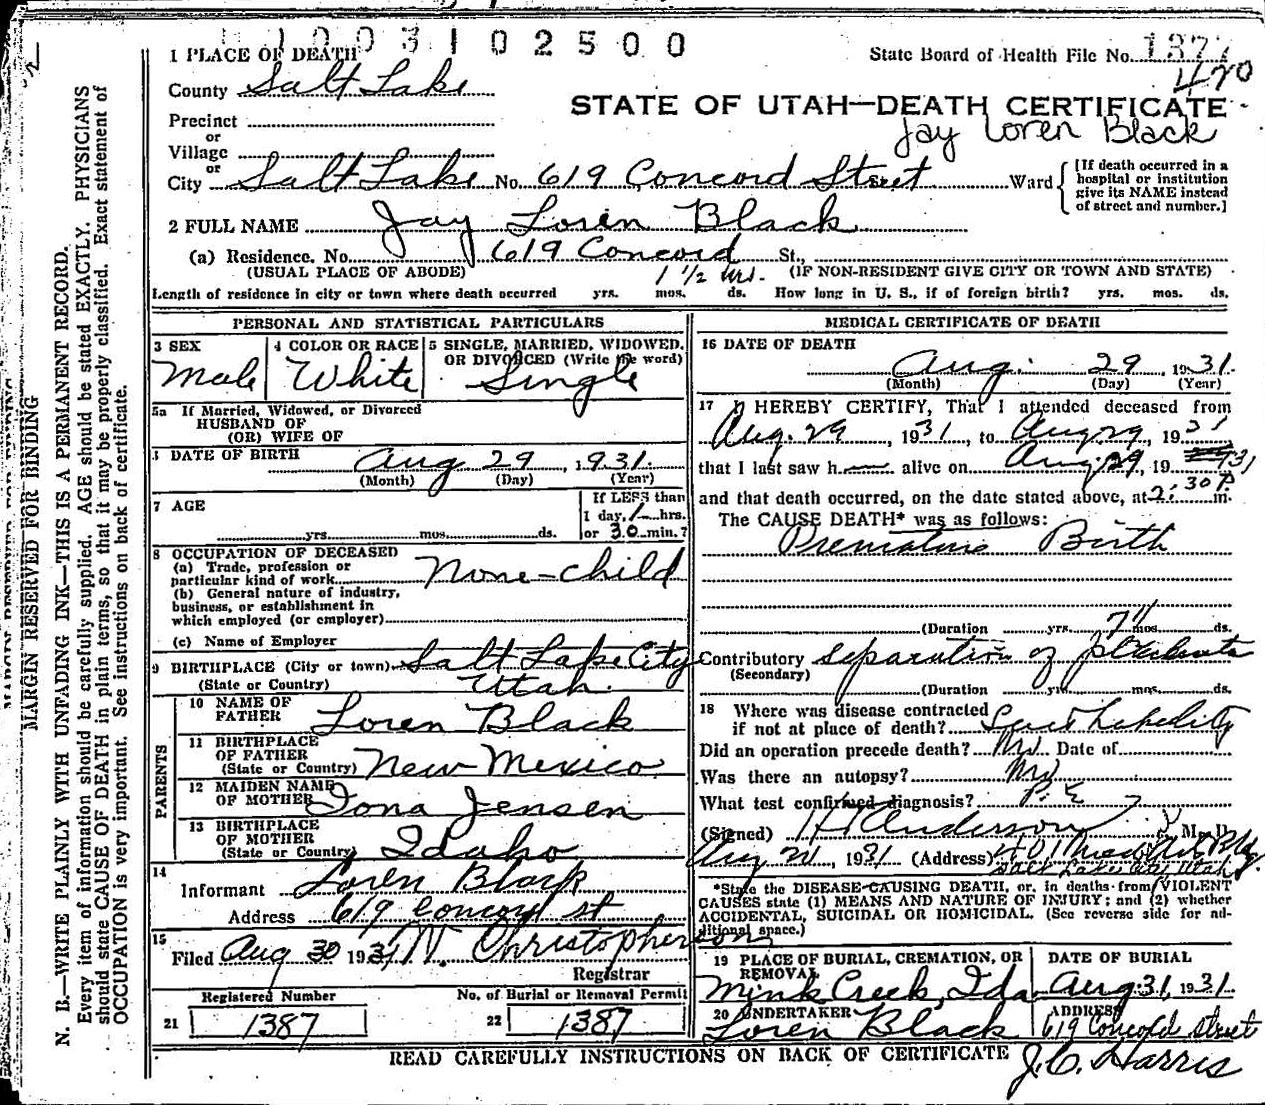 1003102500
1 PLACE OF DEATH
State Board of Health File No. 1377
420
County Salt Lake
STATE OF UTAH—DEATH CERTIFICATE
Jay Loren Black
Precinct
or
Village
or
City Salt Lake No. 619 Concord Street Ward
[If death occurred in a
hospital or institution
give its NAME instead
of street and number.]
2 FULL NAME Jay Loren Black
(a) Residence. No. 619 Concord St.,
(USUAL PLACE OF ABODE) 1 1/2 hrs. (IF NON-RESIDENT GIVE CITY OR TOWN AND STATE)
Length of residence in city or town where death occurred yrs. mos. ds. How long in U. S., if of foreign birth? yrs. mos. ds.
PERSONAL AND STATISTICAL PARTICULARS
3 SEX
Male
4 COLOR OR RACE
White
5 SINGLE, MARRIED, WIDOWED,
OR DIVORCED (Write the word)
Single
5a If Married, Widowed, or Divorced
HUSBAND OF
(OR) WIFE OF
DATE OF BIRTH Aug 29, 1931.
(Month) (Day) (Year)
7 AGE
yrs. mos. ds.
If LESS than
1 day, 1 hrs.
or 30 min.?
8 OCCUPATION OF DECEASED
(a) Trade, profession or
particular kind of work None-child
(b) General nature of industry,
business, or establishment in
which employed (or employer)
(c) Name of Employer
9 BIRTHPLACE (City or town) Salt Lake City
(State or Country) Utah.
PARENTS
10 NAME OF
FATHER Loren Black
11 BIRTHPLACE
OF FATHER
(State or Country) New Mexico
12 MAIDEN NAME
OF MOTHER Iona Jensen
13 BIRTHPLACE
OF MOTHER
(State or Country) Idaho
14
Informant Loren Black
Address 619 Concord St
15
Filed Aug 30 1931 N. Christopherson
Registrar
Registered Number
21 1387
No. of Burial or Removal Permit
22 1387
MEDICAL CERTIFICATE OF DEATH
16 DATE OF DEATH
Aug. 29, 1931.
(Month) (Day) (Year)
17 I HEREBY CERTIFY, That I attended deceased from
Aug. 29, 1931, to Aug 29, 1931
that I last saw h alive on Aug 29, 1931
and that death occurred, on the date stated above, at 2:30 P. m.
The CAUSE DEATH* was as follows:
Premature Birth
(Duration yrs. 7 mos. ds.
Contributory separation of placenta
(Secondary)
(Duration yrs. mos. ds.
18 Where was disease contracted
if not at place of death?
Did an operation precede death? No Date of
Was there an autopsy? No
What test confirmed diagnosis? P. E
(Signed) Anderson, M. D.
Aug, 1931 (Address) 401 Medical Arts Bldg.
Salt Lake City Utah
*State the DISEASE-CAUSING DEATH, or, in deaths from VIOLENT
CAUSES state (1) MEANS AND NATURE OF INJURY; and (2) whether
ACCIDENTAL, SUICIDAL OR HOMICIDAL. (See reverse side for additional space.)
19 PLACE OF BURIAL, CREMATION, OR
REMOVAL
Mink Creek, Ida.
DATE OF BURIAL
Aug. 31, 1931.
20 UNDERTAKER
Loren Black
ADDRESS
619 Concord Street
READ CAREFULLY INSTRUCTIONS ON BACK OF CERTIFICATE
J. C. Harris
MARGIN RESERVED FOR BINDING
N. B.—WRITE PLAINLY WITH UNFADING INK—THIS IS A PERMANENT RECORD.
Every item of information should be carefully supplied. AGE should be stated EXACTLY. PHYSICIANS
should state CAUSE OF DEATH in plain terms, so that it may be properly classified. Exact statement of
OCCUPATION is very important. See instructions on back of certificate.